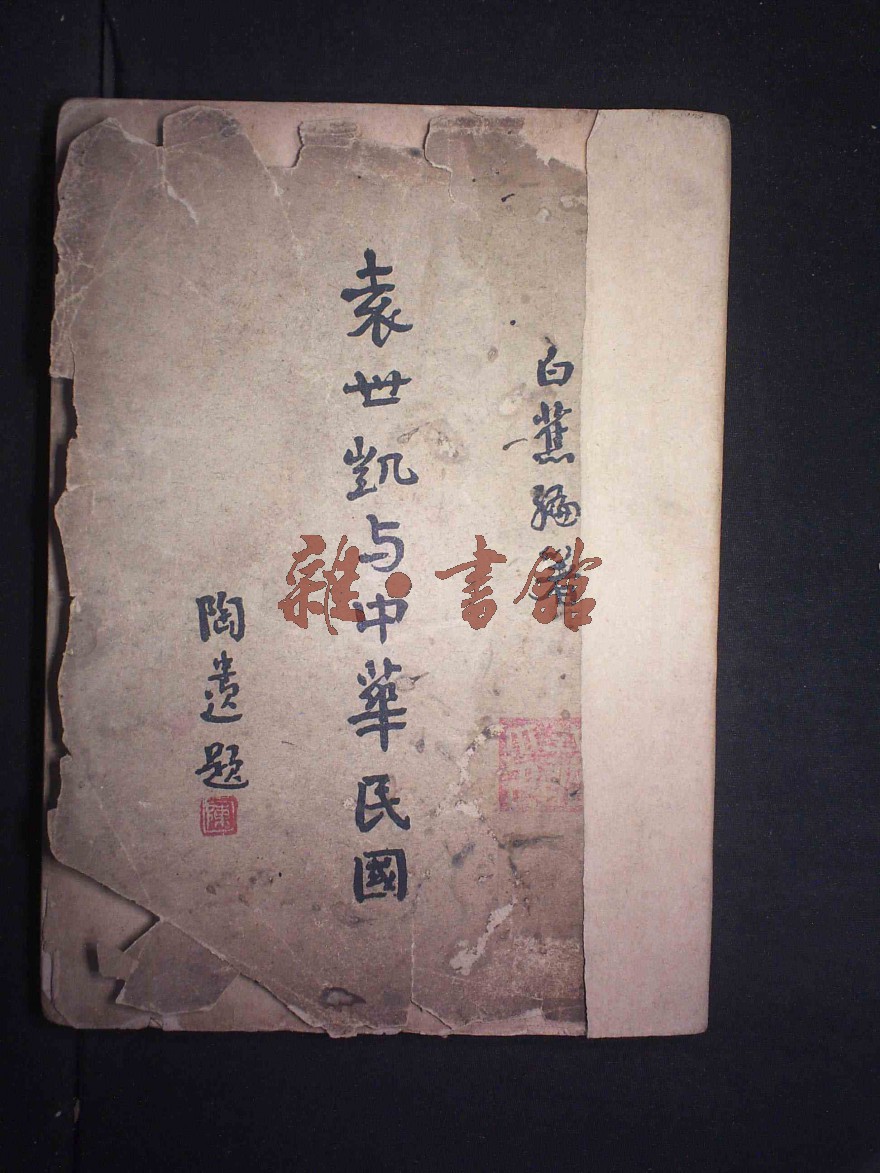 白蕉編著
袁世凱与中華民國
陶遺題
陳
雜·書館